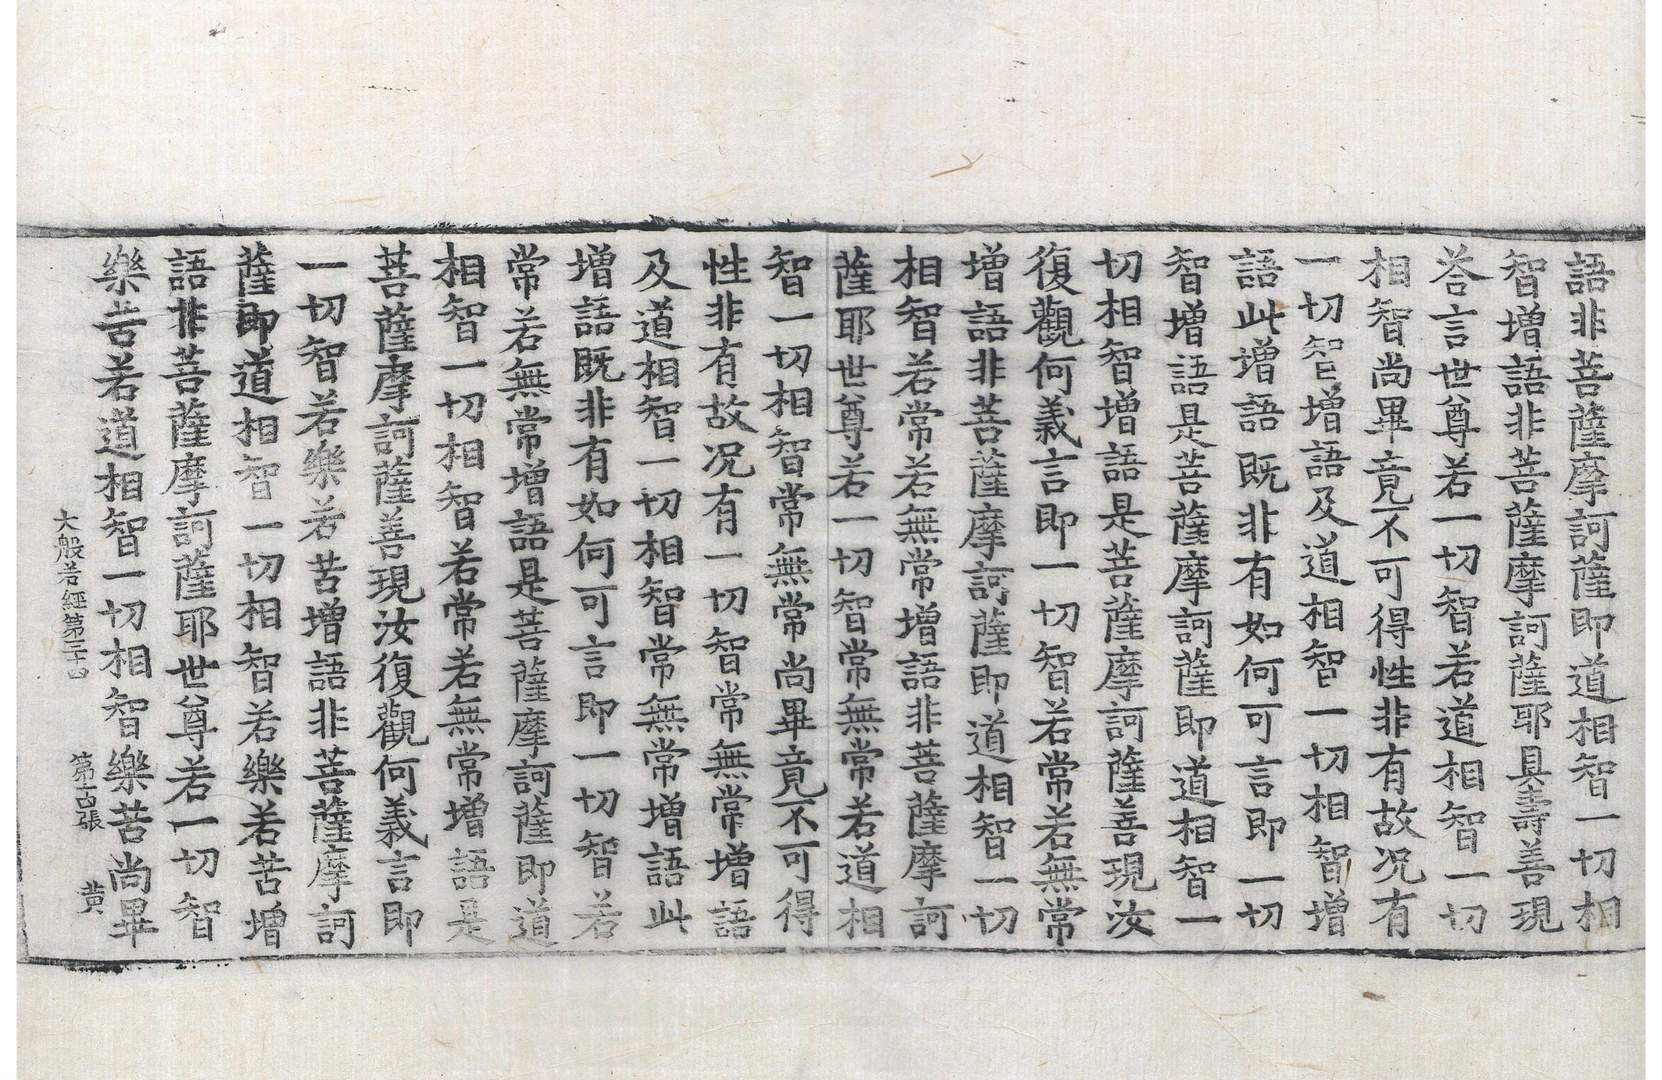 語非菩薩摩訶薩即道相智一切相
智增語非菩薩摩訶薩耶具壽善現
荅言世尊若一切智若道相智一切
相智尚畢竟不可得性非有故况有
一切智增語及道相智一切相智增
語此增語旣非有如何可言即一切
智增語是菩薩摩訶薩即道相智一
切相智增語是菩薩摩訶薩善現汝
復觀何義言即一切智若常若無常
增語非菩薩摩訶薩即道相智一切
相智若常若無常增語非菩薩摩訶
薩耶世尊若一切智常無常若道相
智一切相智常無常尚畢竟不可得
性非有故况有一切智常無常增語
及道相智一切相智常無常增語此
增語旣非有如何可言即一切智若
常若無常增語是菩薩摩訶薩即道
相智一切相智若常若無常增語是
菩薩摩訶薩善現汝復觀何義言即
一切智若樂若苦增語非菩薩摩訶
薩即道相智一切相智若樂若苦增
語非菩薩摩訶薩耶世尊若一切智
樂苦若道相智一切相智樂苦尚畢
大般若經第三十四 第十四張 黄